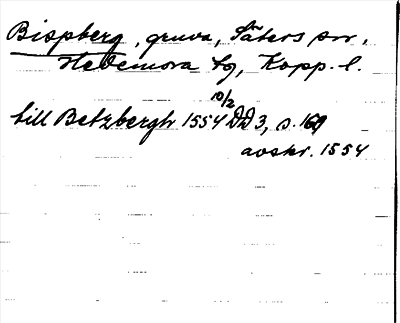 Bispberg, gruva, Säters sn,
Hedemora tg, Kopp. l.
10/2
till Betzbergh 1554 DD 3, s. 169
avskr. 1554